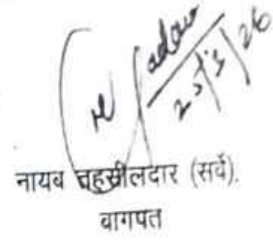 25/3/26
नायब तहसीलदार (सर्वे).
वागपत